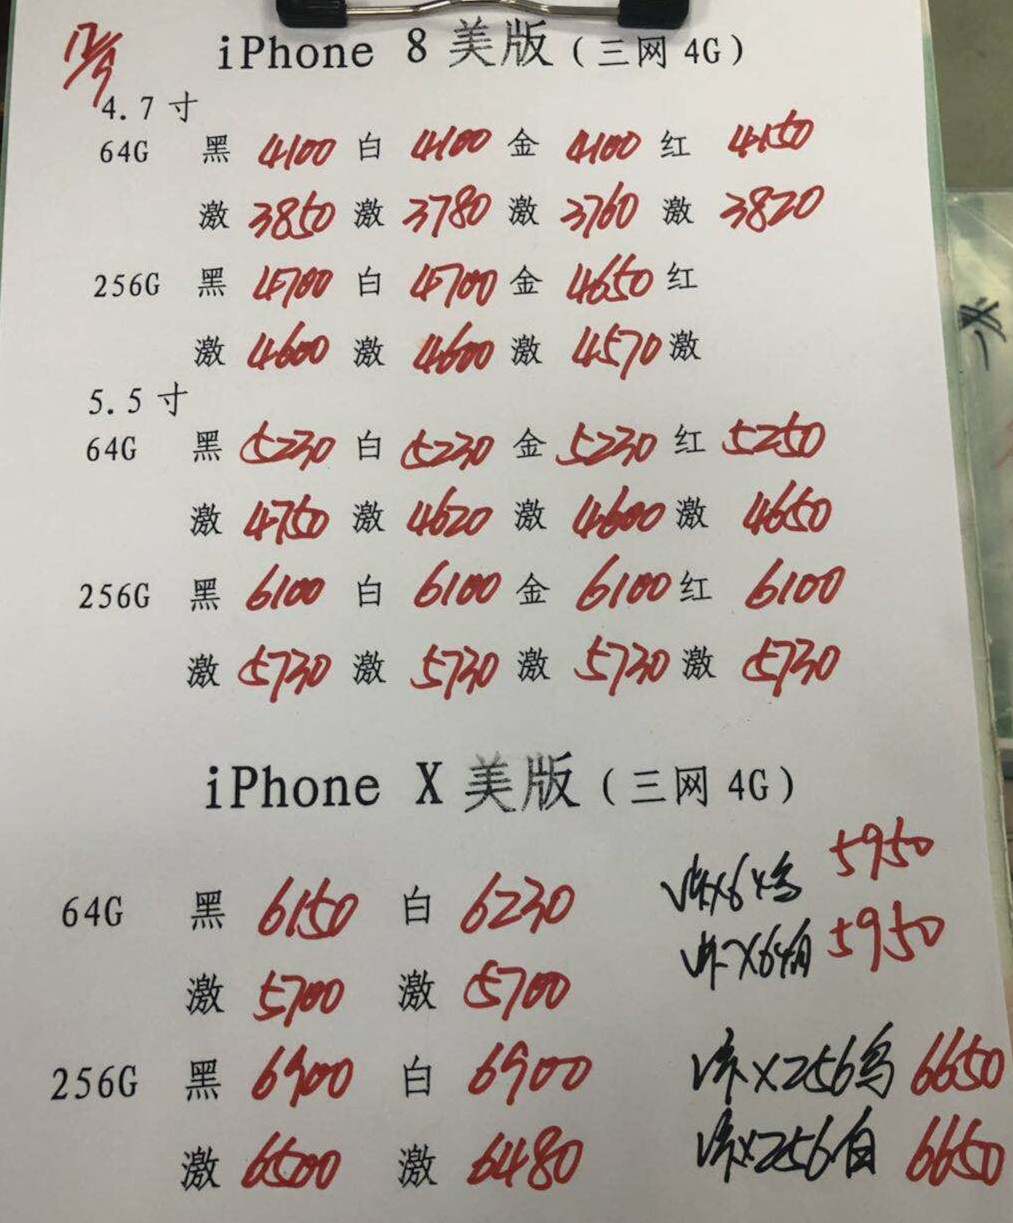 12/9
iPhone 8 美版(三网4G)
4.7寸
64G 黑 4100 白 4100 金 4100 红 4150
激 3850 激 3780 激 3760 激 3820
256G 黑 4700 白 4700 金 4650 红
激 4600 激 4600 激 4570 激
5.5寸
64G 黑 5230 白 5230 金 5230 红 5250
激 4750 激 4620 激 4600 激 4650
256G 黑 6100 白 6100 金 6100 红 6100
激 5730 激 5730 激 5730 激 5730
iPhone X 美版(三网4G)
5950
64G 黑 6150 白 6230
5950
激 5700 激 5700
256G 黑 6900 白 6900 X256 6650
激 6500 激 6480 X256白 6650